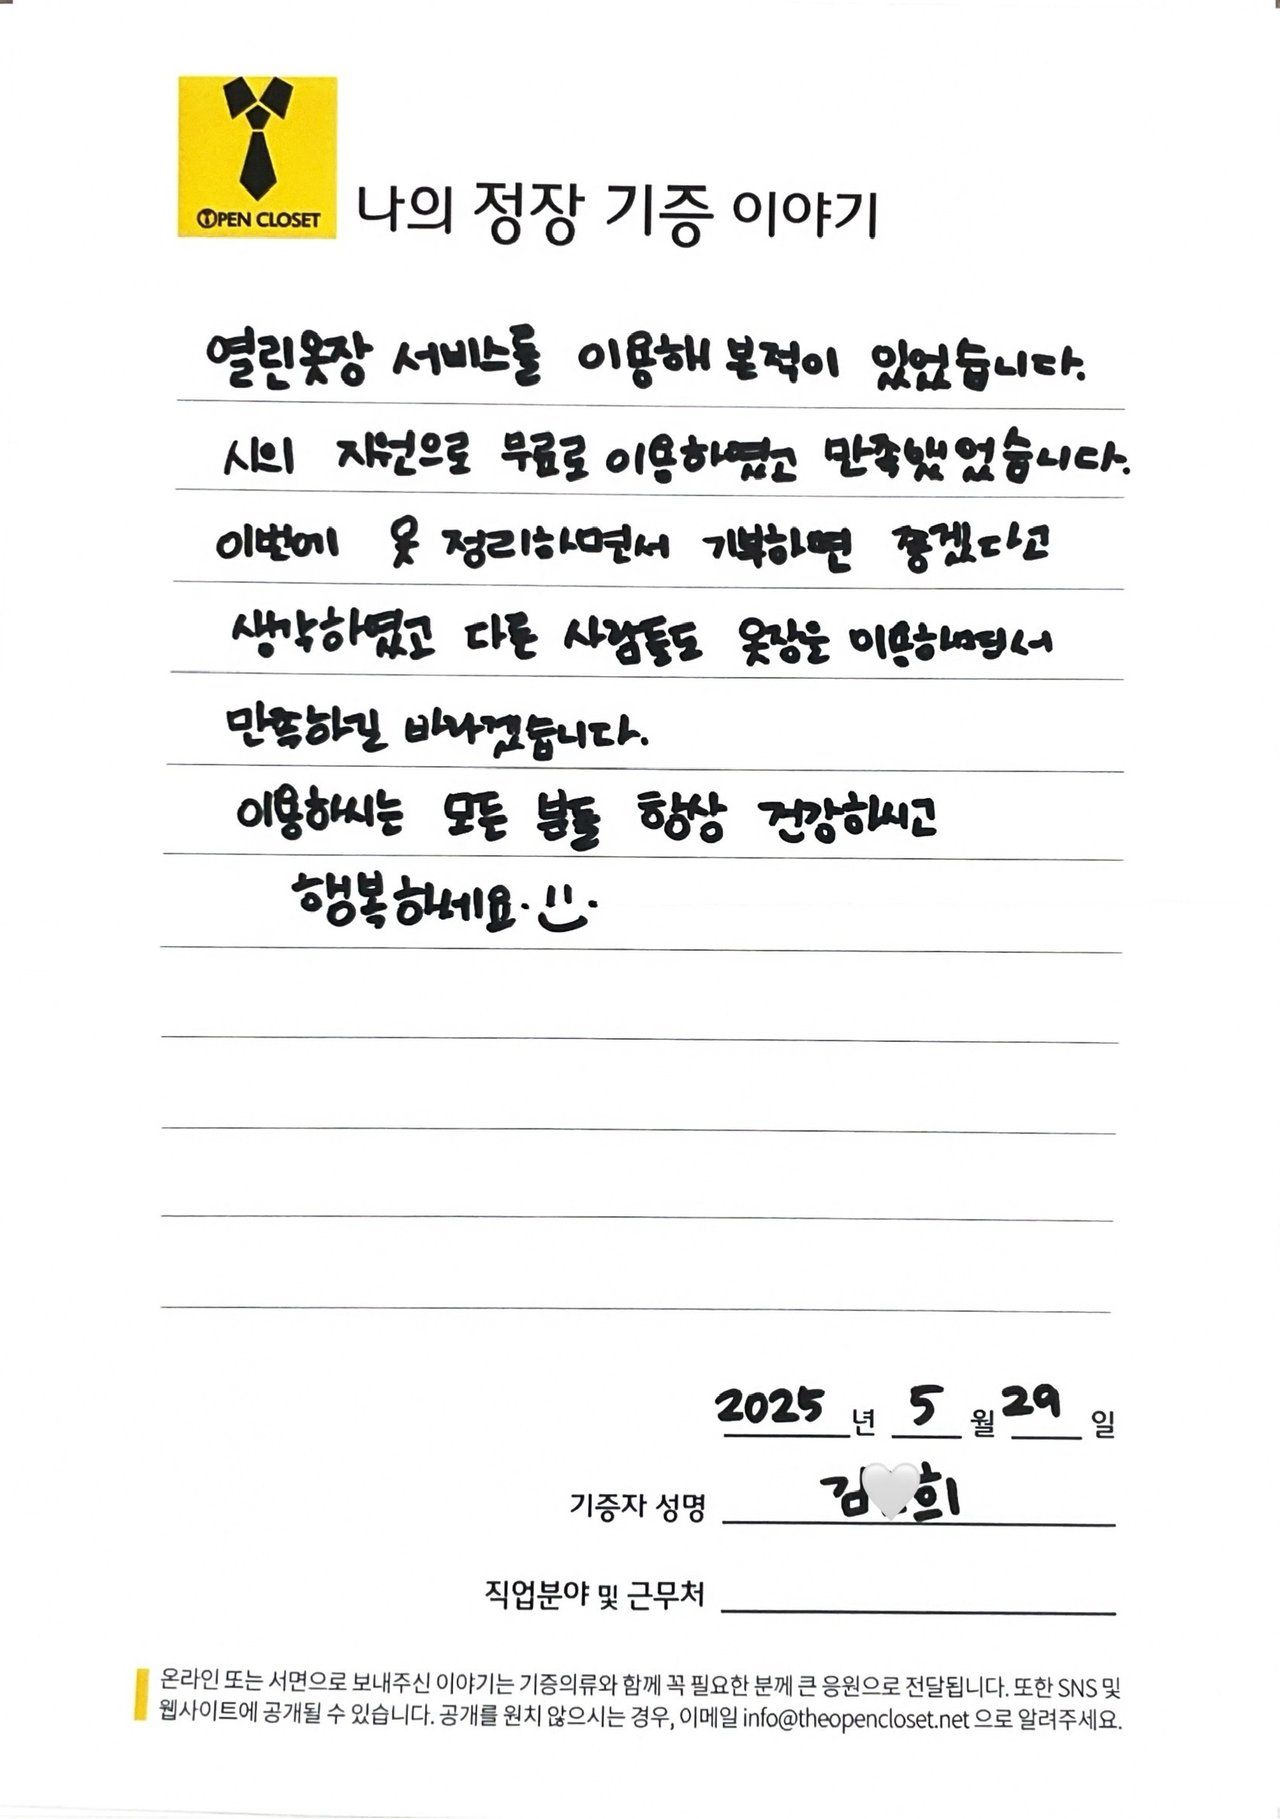 OPEN CLOSET
나의 정장 기증 이야기
열린옷장 서비스를 이용해 본적이 있었습니다.
시의 지원으로 무료로 이용하였고 만족했었습니다.
이번에 옷 정리하면서 기부하면 좋겠다고
생각하였고 다른 사람들도 옷장을 이용하면서
만족하길 바라겠습니다.
이용하시는 모든 분들 항상 건강하시고
행복하세요.
2025 년 5 월 29 일
기증자 성명 김 희
직업분야 및 근무처
온라인 또는 서면으로 보내주신 이야기는 기증의류와 함께 꼭 필요한 분께 큰 응원으로 전달됩니다. 또한 SNS 및
웹사이트에 공개될 수 있습니다. 공개를 원치 않으시는 경우, 이메일 info@theopencloset.net 으로 알려주세요.